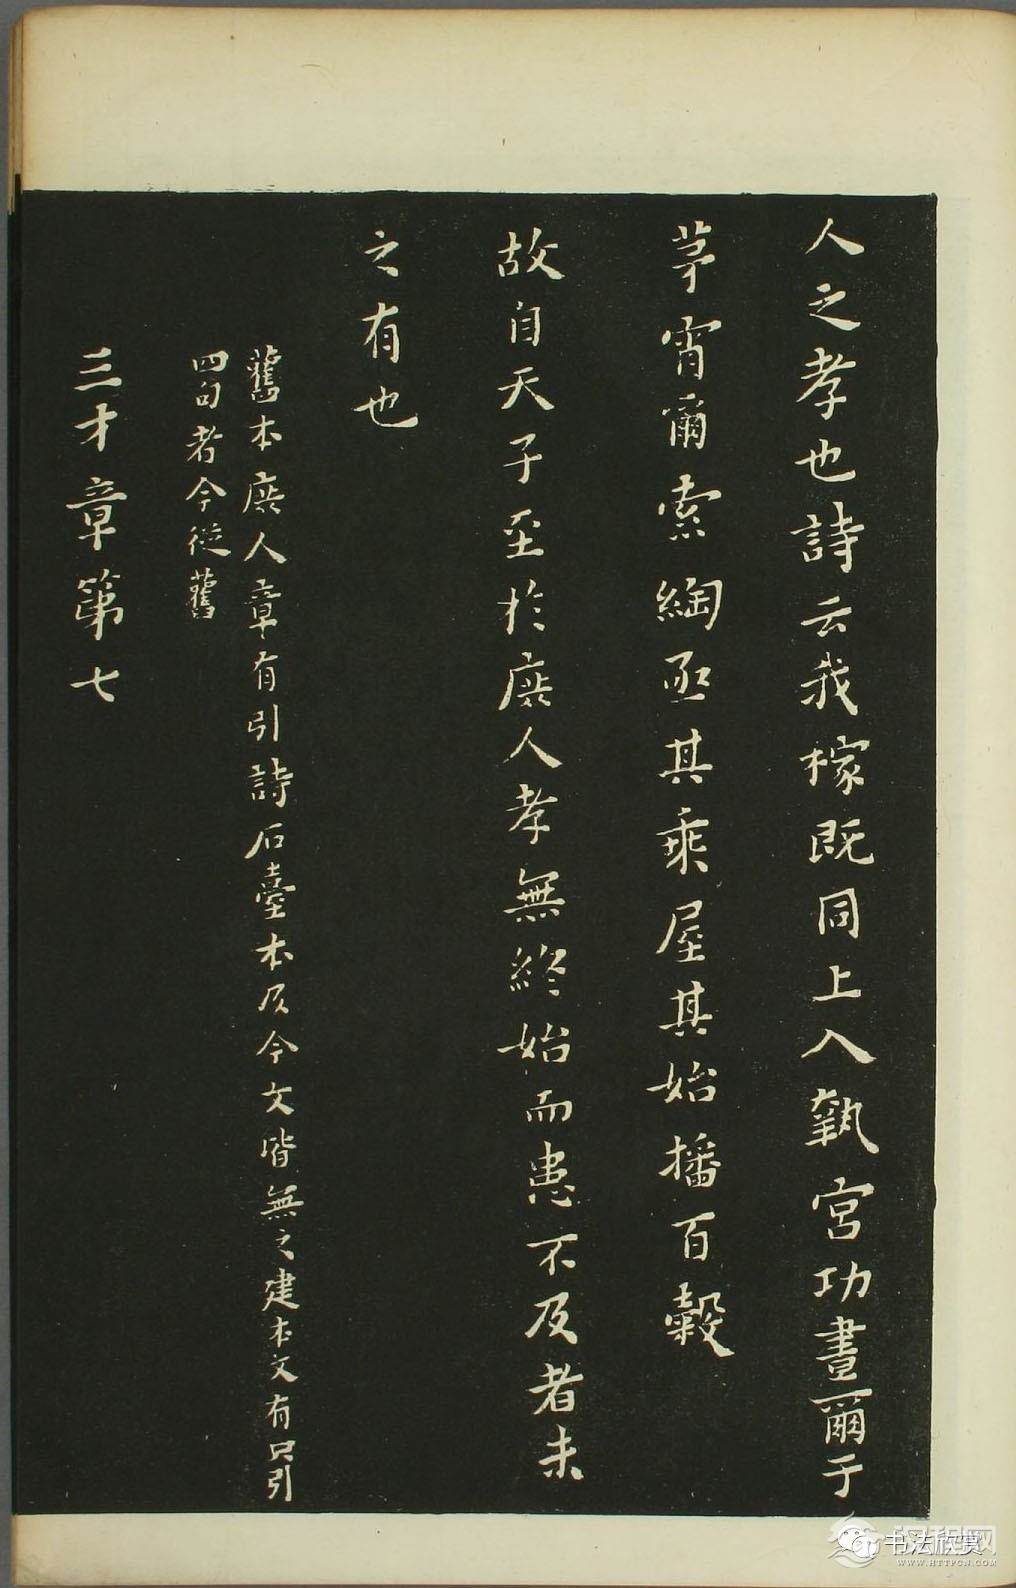 人之孝也詩云我稼既同上入執宮功晝爾于
茅宵爾索綯亟其乘屋其始播百穀
故自天子至於庶人孝無終始而患不及者未
之有也
舊本庶人章有引詩石臺本及今文皆無之建本文有只引
四句者今從舊
三才章第七
书法欣赏
WWW.HTTPCN.COM